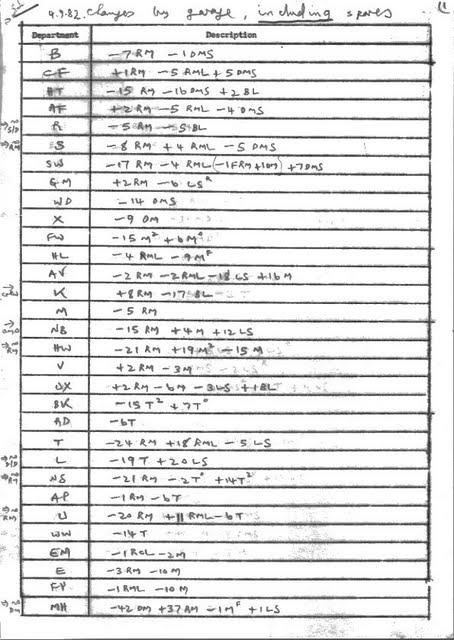 4.9.82. Changes by garage, including spares
Department Description
B -7RM -1DMS
CF +1RM -5 RML +5 DMS
HT -15 RM -16 DMS +2BL
AF +2RM -5 RML -4DMS
R -5RM -5BL
S -8 RM +4 RML -5 DMS
SW -17 RM -4 RML (-1FRM+1DM) +7DMS
GM +2RM -6 LS
WD -14 DMS
X -9 DM
FW -15M² +6M°
HL -4 RML -9Mᶠ
AV -2RM -2RML -18LS +16M
K +8RM -17BL
M -5 RM
NB -15 RM +4M +12LS
HW -21 RM +19M² -15M
V +2RM -3M
UX +2RM -6M -3LS +1BL
BK -15T² +7T°
AD -6T
T -24 RM +18 RML -5LS
L -19T +20LS
NS -21RM -2T° +14T²
AP -1RM -6T
U -20 RM +11 RML -6T
WW -14T
EM -1RCL -2M
E -3RM -10M
FY -1RML -10M
MH -42DM +37RM -1Mᶠ +1LS